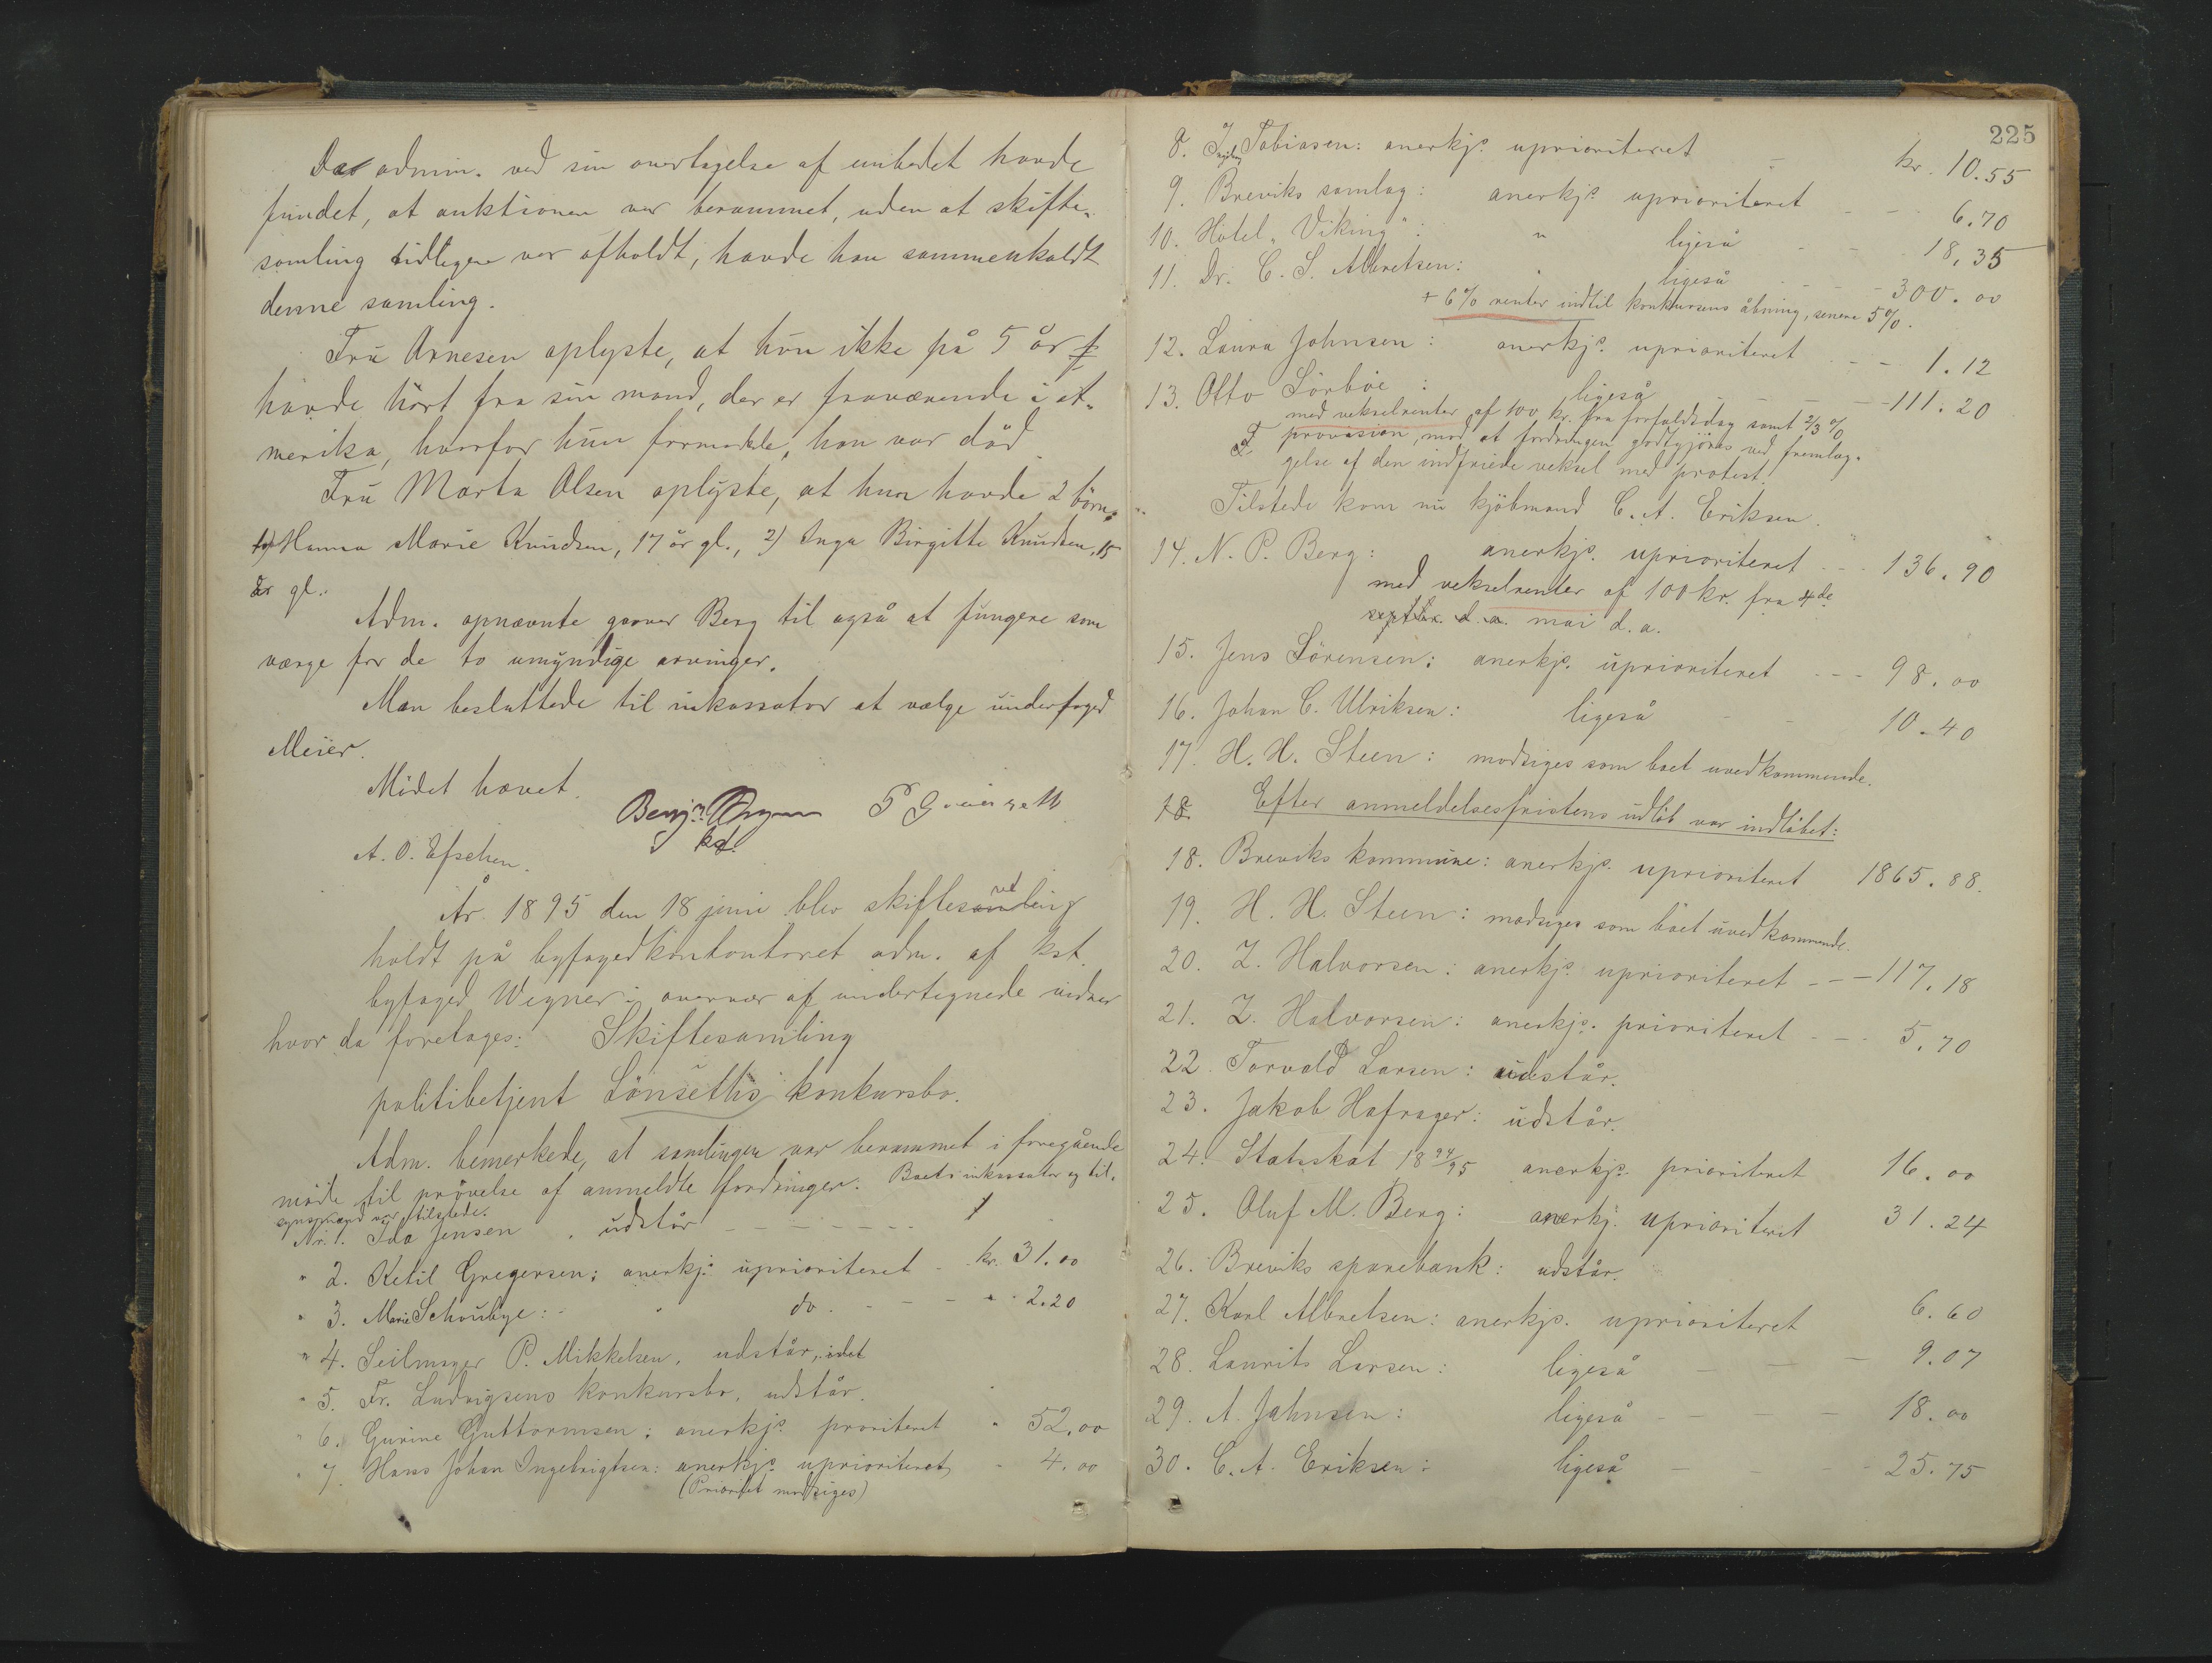 Da admin. ved sin overtagelse af embedet havde
fundet, at auktionen var berammet, uden at skifte-
samling tidligere var afholdt, havde han sammenkaldt
denne samling.
Fru Arnesen oplyste, at hun ikke på 5 år
havde hört fra sin mand, der er fraværende i A-
merika, hvorfor hun formodede, han var död.
Fru Marta Olsen oplyste, at hun havde 2 börn:
1) Hanna Marie Knudsen, 17 år gl., 2) Inga Birgitte Knudsen, 15
år gl.
Adm. opnævnte garver Berg til også at fungere som
værge for de to umyndige arvinger.
Man besluttede til inkassator at vælge underfoged
Meier.
Mödet hævet.
Benj. Wegner
kst.
A. O. Efschen.
År 1895 den 18 juni blev skifteret
holdt på byfogedkontoret adm. af kst.
byfoged Wegner i overvær af undertegnede vidner
hvor da foretages: Skiftesamling
politibetjent Lönseths konkursbo.
Adm. bemerkede, at samlingen var berammet i foregående
möde til prövelse af anmeldte fordringer. Boets inkassator og til-
synsmænd var tilstede.
Nr. 1. Ida Jensen, udstår
" 2. Ketil Gregersen: anerkjs. uprioriteret kr. 31.00
" 3. Marie Schoubye: " do. " 2.20
" 4. Seilmager P. Mikkelsen, udstår, idet
" 5. Fr. Ludvigsens konkursbo, udstår.
" 6. Gurine Guttormsen: anerkjs. prioriteret " 52.00
" 7. Hans Johan Ingebrigtsen: anerkjs. uprioriteret " 4.00
(Prioritet modsiges)
225
8. J Tobiasen: anerkjs. uprioriteret kr. 10.55
9. Breviks samlag: anerkjs uprioriteret 6.70
10. Hotel "Viking": " ligeså 18.35
11. Dr. C. S. Albretsen: " ligeså 300.00
+ 6% renter indtil konkursens åbning, senere 5%.
12. Laura Johnsen: anerkjs. uprioriteret 1.12
13. Otto Sörböe: ligeså 111.20
med vekselrenter af 100 kr. fra forfaldsdag samt 2/3 %
provision, mod at fordringen godtgjöres ved fremlæg-
gelse af den indfriede veksel med protest.
Tilstede kom nu kjöbmand C. A. Eriksen.
14. N. P. Berg: anerkjs. uprioriteret 136.90
med vekselrenter af 100 kr. fra 4de
septbr. d. a. mai d. a.
15. Jens Sörensen: anerkjs. uprioriteret 98.00
16. Johan C. Ulriksen: ligeså 10.40
17. H. H. Steen: modsiges som boet uvedkommende.
18. Efter anmeldelsesfristens udlöb var indlöbet:
18. Breviks kommune: anerkjs. uprioriteret 1865.88.
19. H. H. Steen: modsiges som boet uvedkommende.
20. Z. Halvorsen: anerkjs. uprioriteret 117.18
21. Z. Halvorsen: anerkjs. prioriteret 5.70
22. Torvald Larsen: udstår.
23. Jakob Hafrager: udstår.
24. Statsskat 1894/95 anerkjs. prioriteret 16.00
25. Oluf M. Berg: anerkj. uprioriteret 31.24
26. Breviks sparebank: udstår.
27. Karl Albretsen: anerkjs. uprioriteret 6.60
28. Laurits Larsen: ligeså 9.07
29. A. Johnsen: ligeså 18.00
30. C. A. Eriksen: ligeså 25.75